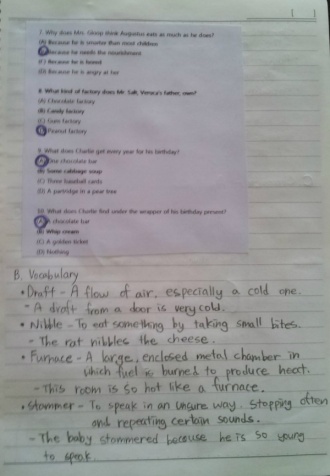 7. Why does Mrs. Gloop think Augustus eats as much as he does?
(A) Because he is smarter than most children
(B) Because he needs the nourishment
(C) Because he is bored
(D) Because he is angry at her
8. What kind of factory does Mr. Salt, Veruca's father, own?
(A) Chocolate factory
(B) Candy factory
(C) Gum factory
(D) Peanut factory
9. What does Charlie get every year for his birthday?
(A) One chocolate bar
(B) Some cabbage soup
(C) Three baseball cards
(D) A partridge in a pear tree
10. What does Charlie find under the wrapper of his birthday present?
(A) A chocolate bar
(B) Whip cream
(C) A golden ticket
(D) Nothing
B. Vocabulary
• Draft - A flow of air, especially a cold one.
- A draft from a door is very cold.
• Nibble - To eat something by taking small bites.
- The rat nibbles the cheese.
• Furnace - A large, enclosed metal chamber in
which fuel is burned to produce heat.
- This room is so hot like a furnace.
• Stammer - To speak in an unsure way. Stopping often
and repeating certain sounds.
- The baby stammered because he is so young
to speak.